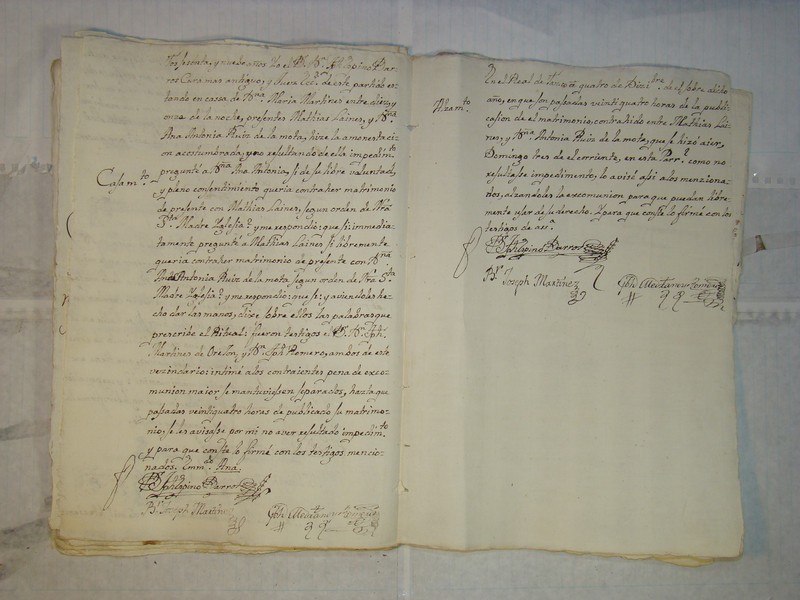 tos sesenta, y nueve años Yo el Br. Dn. Philipino Bar-
ros Cura mas antiguo, y Juez Ecco. de este partido es-
tando en cassa de Dna. Maria Martines entre diez, y
onze de la noche, presentes Mathias Laines, y Dna.
Ana Antonia Ruiz de la mota, hize la amonestaci-
on acostumbrada, y no resultando de ella impedimto.
pregunté a Dna. Ana Antonia, si de su libre voluntad,
Casamto.
y pleno consentimiento queria contraher matrimonio
de presente con Mathias Laines, segun orden de Nra.
Sta. Madre Yglesia? y me respondio: que si: immedia-
tamente pregunté a Mathias Laines si libremente
queria contraher matrimonio de presente con Dna.
Ana Antonia Ruiz de la mota segun orden de Nra. Sta.
Madre Yglesia? y me respondio: que si; y aviendoles he-
cho dar las manos, dixe sobre ellos las palabras que
prescribe el Ritual: fueron testigos el Br. Dn. Jph.
Martines de Oreson, y Dn. Jph. Romero, ambos de este
vezindario: intimé a los contraientes pena de exco-
munion maior se mantuviessen separados, hasta que
passadas veintiquatro horas de publicado su matrimo-
nio, se les avisasse por mi no aver resultado impedimto.
y para que conste lo firmé con los testigos mencio-
nados. Emmdo. Ana
Br. Philipino Barros
Br. Joseph Martinez
Jph. Romero
En el Real de quatro de Dizibre. de el sobre dicho
Alzamto.
año, en que son passadas veinti quatro horas de la publi-
casion de el matrimonio, contrahido entre Mathias Lai-
nes, y Dna. Antonia Ruiz de la mota, que se hizó aier,
Domingo tres de el corriente, en esta Parra. como no
resultasse impedimento, lo avisé assi a los menciona-
dos, alzandoles la excomunion para que puedan libre-
mente usar de su derecho. Y para que conste lo firmé con los
testigos de ass.
Br. Philipino Barros
Br. Joseph Martinez
Jph. Romero